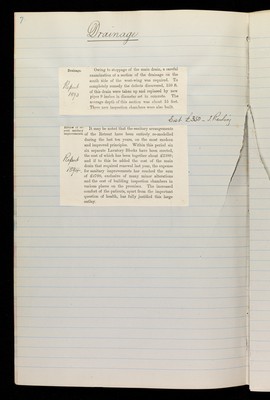 7
Drainage.
Drainage.
Owing to stoppage of the main drain, a careful
examination of a section of the drainage on the
south side of the west-wing was required. To
completely remedy the defects discovered,
of this drain were taken up and replaced by new
pipes 9 inches in diameter set in cement. The
average depth of this section was about 15 feet.
Three new inspection chambers were also built.
Report
Cost £
It may be noted that the sanitary arrangements
of the Retreat have been entirely re-modelled
during the last ten years, on the most modern
and improved principles. Within this period
six separate Lavatory Blocks have been erected,
the cost of which has been together about
and if to this be added the cost of the main
drain that required renewal last year, the expense
for sanitary improvements has reached the sum
of exclusive of many minor alterations
and the cost of building inspection chambers in
various places on the premises. The increased
comfort of the patients, apart from the important
question of health, has fully justified this large
outlay.
Report